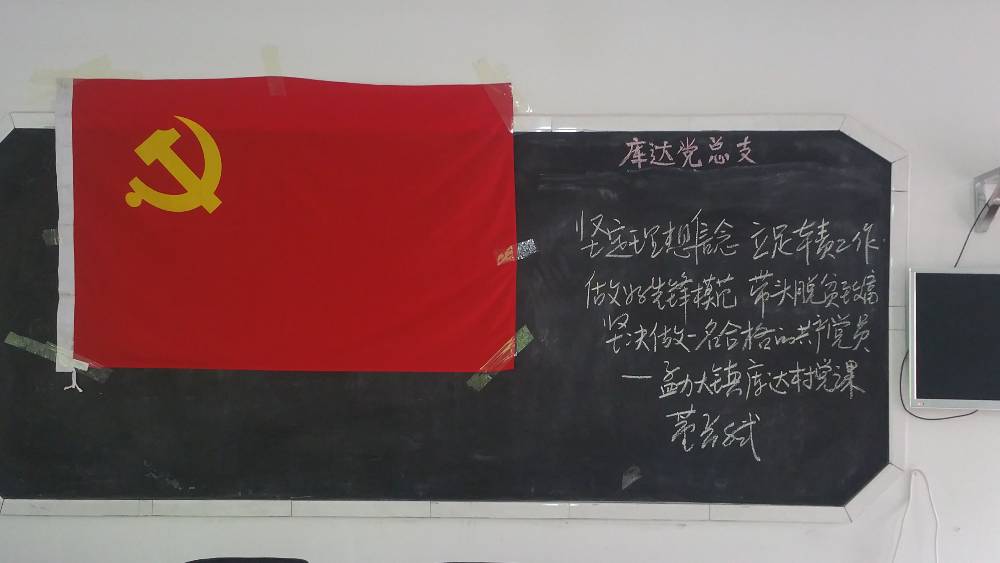 库达党总支
坚定理想信念 立足本责工作.
做好先锋模范 带头脱贫致富
坚决做一名合格的共产党员
—勐大镇库达村党课